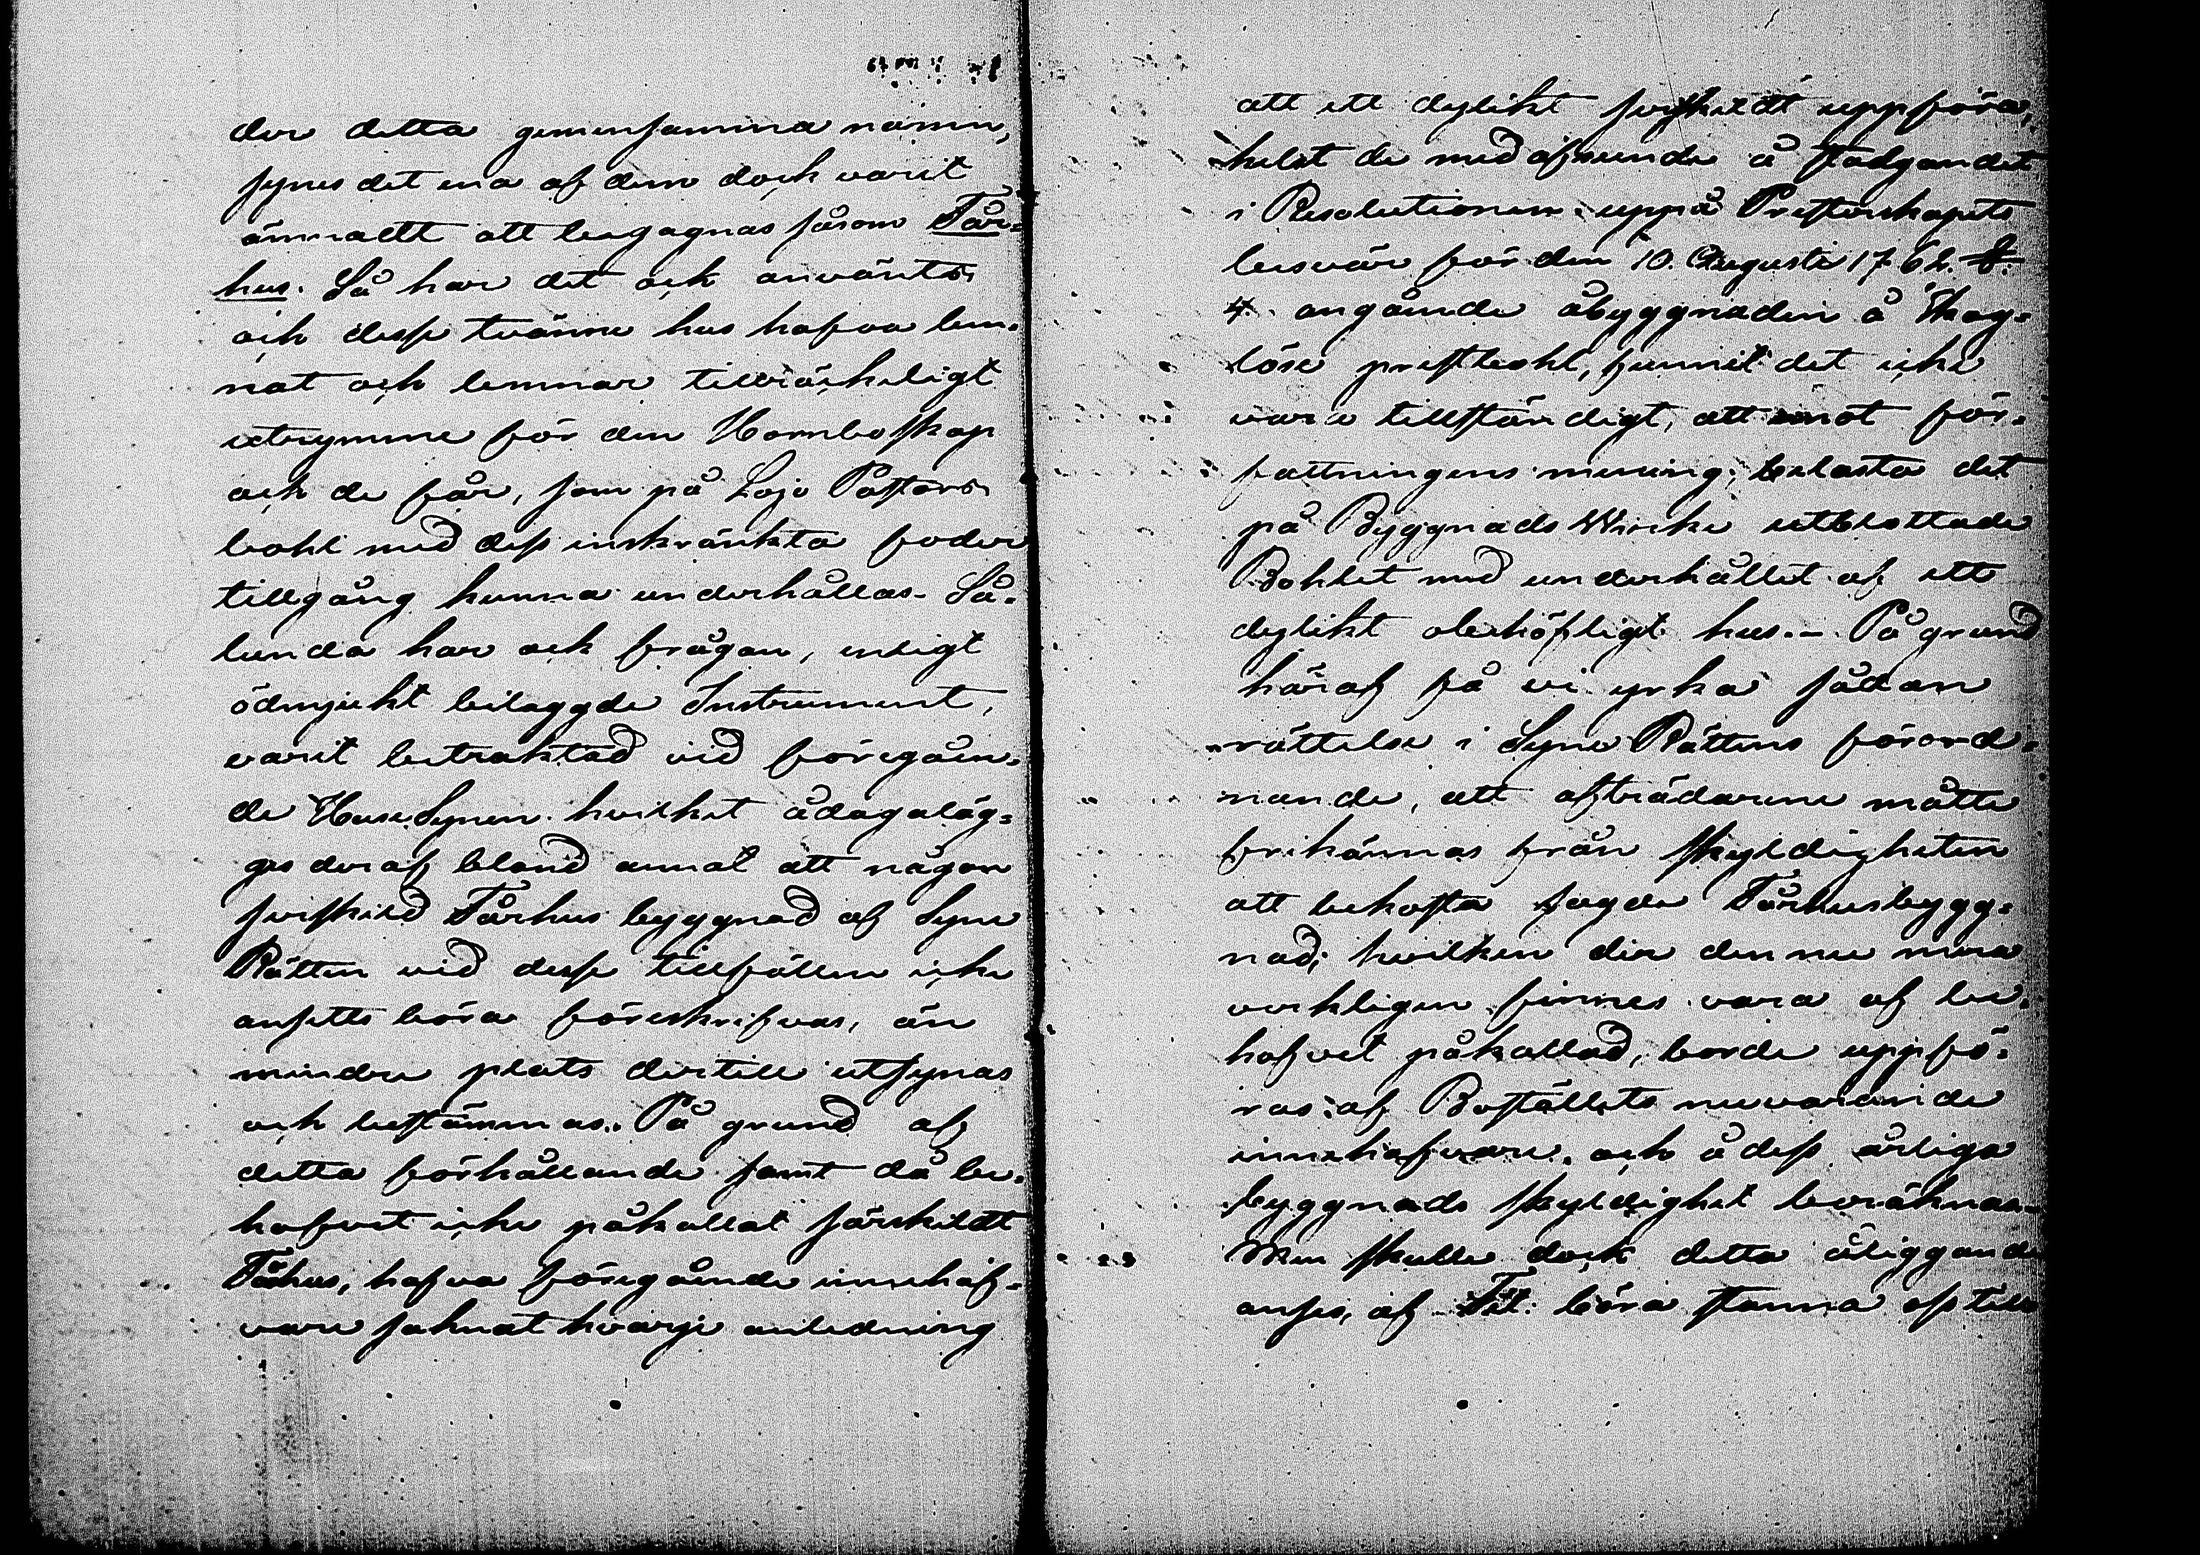 der detta gemensamma namn,
synes det ena af dem dock varit
ämnadt att begagnas såsom Får-
hus. Så har det ock använts
och desse tvänne hus hafva lem-
nat och lemnar tillräckeligt
utrymme för den Hornboskap
och de får, som på Lojo Pastors
bohl med dess inskränkta foder
tillgång kunna underhållas. Så-
lunda har ock frågan, enligt
ödmjukt bilaggde Instrument,
varit betraktad vid föregåen-
de HuseSynen hvilket ådagaläg-
ges deraf bland annat att någon
serskild Fårhus byggnad af Syne
Rätten vid desse tillfällen icke
ansetts böra föreskrifvas, än
mindre plats dertill utsynas
och bestämmas. På grund af
detta förhållande samt då be-
hofvet icke påkallat särskildt
Fårhus, hafva föregående innehaf-
vare saknat hvarje anledning
att ett dylikt serskildt uppföra,
helst de med afseende å stadgandet
i Resolutionen uppå Presterskapets
besvär för den 10. Augusti 1762. §.
4. angående åbyggnaden å Skog-
löse prestbohl, funnit det icke
vara tillständigt, att emot för-
fattningens mening, belasta det
på Byggnads Wirke utblottade
Bohlet med underhållet af ett
dylikt obehöfligt hus. - På grund
häraf få vi yrka sådan
rättelse i Syne Rättens förord-
nande, att afträdarene måtte
frikännas från skyldigheten
att bekosta sagde Fårhusbygg-
nad; hvilken der den nu mera
verkligen finnes vara af be-
hofvet påkallad, borde uppfö-
ras af Boställets nuvarande
innehafvare och å dess årliga
byggnads skyldighet beräknas-
Men skulle dock detta åliggande
anses, af Tit: böra stanna oss till